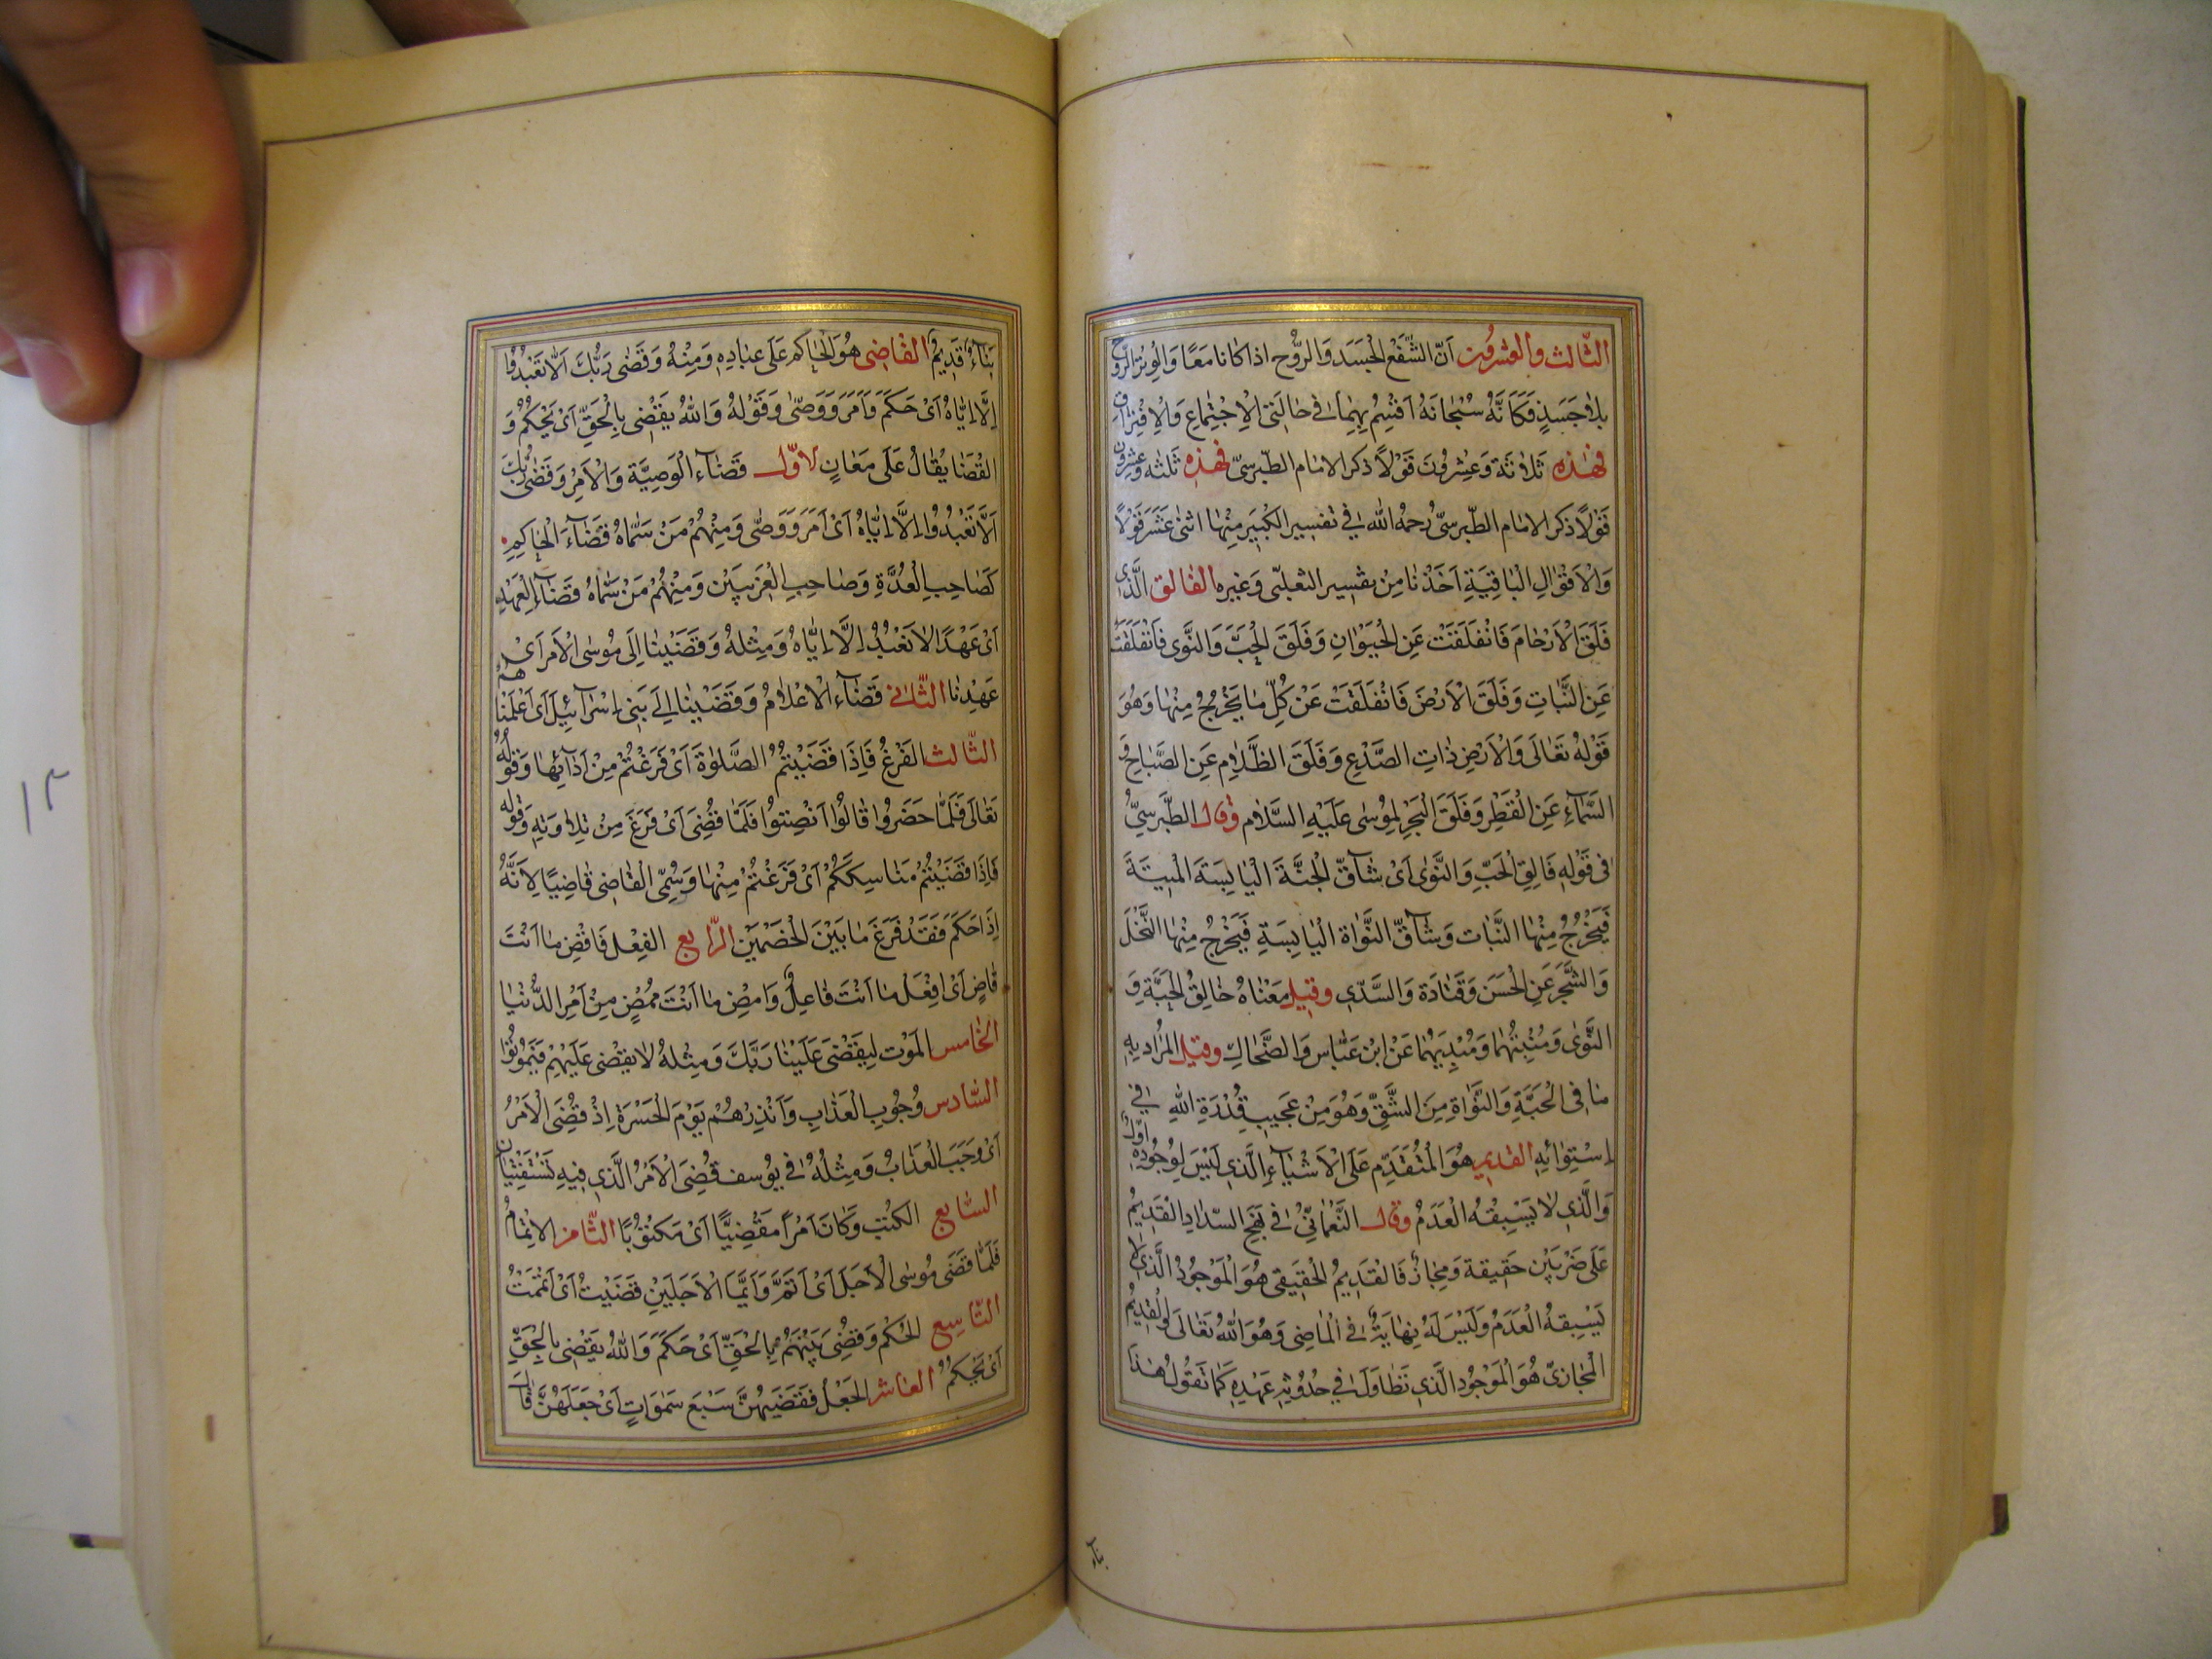 الثّالث والعشرون اَنَّ الشَّفْعَ الْجَسَد وَالرُّوْح اذا كانا مَعًا وَالْوِتْرَ الرّوح
بِلا جَسَدٍ فَكَاَنَّهُ سُبْحَانَهُ اَقْسَمَ بِهِمٰا فى حٰالَتَىِ الْاِجْتِمٰاعِ وَالْاِفْتِرٰاقِ
فهٰذه ثَلاثَة وَعِشْرُوْنَ قَوْلاً ذكر الامٰام الطّبرسىّ فهذه ثلثه وعشرون
قَوْلاً ذكر الامٰام الطّبرسىُّ رحمهُ الله فى تفسير الكبير مِنْهٰا اثنىٰ عَشَرَ قَوْلاً
وَالْاَقْوٰالِ الْبٰاقِيَةِ اَخَذْنٰا مِنْ تفسير الثعلبىّ وَغيره الفٰالق الَّذى
فَلَقَ الْاَرْحٰامَ فَانْفَلَقَتْ عَنِ الْحَيَوٰانِ وَفَلَقَ الْحَبَّ وَالنَّوٰى فَانْفَلَقَتْ
عَنِ النَّبٰاتِ وَفَلَقَ الْاَرْضَ فَانْفَلَقَتْ عَنْ كُلِّ مٰا يَخْرُجُ مِنْهٰا وَهُوَ
قَوْلُهُ تَعٰالَى وَالْاَرْضِ ذٰاتِ الصَّدْعِ وَفَلَقَ الظَّلٰامِ عَنِ الصَّبٰاحِ وَ
السَّمٰآءِ عَنِ الْقَطْرِ وَفَلَقَ الْبَحْرَ لِمُوسٰى عَلَيْهِ السَّلٰام وقال الطَّبَرسِىُّ
فى قَوْلِهِ فَالِقِ الْحَبِّ وَالنَّوٰى اَىْ شٰآقّ الْحَبَّةَ الْيٰابِسَةَ الْمَيِتَةَ
فَيَخْرُجُ مِنْهٰا النَّبٰات وَشٰآقّ النَّوٰاةِ الْيٰابِسَةِ فَيَخْرُجُ مِنْهٰا النَّخْلَ
وَالشَّجَرَ عَنِ الْحَسَنَ وَقَتٰادَة وَالسَّدّى وقيل مَعْنٰاهُ خٰالِقُ الْحَبَّةِ وَ
النَّوٰى وَمُنْبِتُهُمٰا وَمُبْدِيَهُمٰا عَنْ ابْن عَبّٰاس وَالضَّحّٰاك وقيل المُرٰاد بِهِ
مٰا فِى الْحَبَّةِ وَالنَّوٰاةِ مِنَ الشَّقِّ وَهُوَ مِنْ عَجِيبِ قُدْرَةِ اللّٰهِ فى
اِسْتِوٰائِهِ القديم هُوَ الْمُتَقَدِّم عَلَى الْاَشْيٰآءِ الَّذى لَيْسَ لِوُجُودِهِ اوّل
وَالَّذِى لٰا يَسْبِقُهُ الْعَدَمُ وقال النُّعْمٰانِىُّ فى نَهْجِ السّدٰادِ الْقَدِيمُ
عَلَى ضَرْبَيْنِ حَقِيقَة وَمَجٰاز فَالْقَدِيمُ الْحَقيقى هُوَ الْمَوْجُودُ الَّذى لا
يَسْبِقُهُ الْعَدَمُ وَلَيْسَ لَهُ نِهٰايَةٌ فى الْمٰاضِى وَهُوَ اللّٰهُ تَعٰالَى وَالْقَدِيمُ
الْمَجٰازِىُّ هُوَ الْمَوْجُود الَّذى تَطٰاوَلَ فى حُدُوْثِهِ عَهْدِهِ كَمٰا تَقُوْلُ هٰذَا
بنٰاء
بِنٰآءٌ قَدِيمٌ القٰاضى هُوَ الْحٰاكِم عَلَى عِبٰادِهِ وَمِنْهُ وَقَضٰى رَبُّكَ اَلّٰا تَعْبُدُوا
اِلَّا اِيّٰاهُ اَىْ حَكَمَ وَاَمَرَ وَوَصّٰى وَقَوْلهُ وَاللّٰهُ يَقْضِى بِالْحَقِّ اَىْ يَحْكُمُ وَ
القُضٰا يُقٰالُ عَلَى مَعٰانٍ الاوّل قَضٰآء الْوَصِيَّة وَالْاَمِرْ وَقَضٰى رَبُّكَ
اَلَّا تَعْبُدُوْا اِلَّا اِيّٰاهُ اَىْ اَمَرَ وَوَصّٰى وَمِنْهُمْ مَنْ سَمّٰاهُ قَضٰآءَ الْحٰاكِمِ
كَصٰاحِبِ الْعُدَّةِ وَصٰاحِبِ الْغَرِيبَيْنِ وَمِنْهُمْ مَنْ سَمّٰاهُ قَضٰآءَ الْعَهْدِ
اَىْ عَهْدًا لا تَعْبُدُوْا اِلَّا اِيّٰاهُ وَمِثْلهُ وَقَضَيْنٰا اِلَى مُوسٰى الْاَمْر اَىْ
عَهِدْنٰا الثّٰانى قَضٰآء الْاِعْلٰامُ وَقَضَيْنٰا اِلَى بَنِى اِسْرٰآئِيلَ اَىْ اَعْلَمْنٰاهُمْ
الثّٰالث الْفَرْغُ فَاِذَا قَضَيْتُمُ الصَّلوٰةَ اَىْ فَرَغْتُمْ مِنْ اَدٰآئِهٰا وَقَوْلُهُ
تَعٰالَى فَلَمّٰا حَضَرُوا قٰالُوا اَنْصِتُوا فَلَمّٰا قُضِىَ اَىْ فَرَغَ مِنْ تِلٰاوَتِهِ وَقوله
فَاِذَا قَضَيْتُمْ مَنٰاسِكَكُمْ اَىْ فَرَغْتُمْ مِنْهٰا وَسُمّى الْقٰاضِى قٰاضِيًا لِاَنَّهُ
اِذٰا حَكَمَ فَقَدْ فَرَغَ مٰا بَيْنَ الْخَصْمَيْنِ الرّٰابع الفِعْل فَاقْضِ مٰا اَنْتَ
قٰاضٍ اَىْ اِفْعَلْ مٰا اَنْتَ فٰاعِلٌ وَامضِ مٰا اَنْتَ مُمْضٍ مِنْ اَمْرِ الدُّنْيٰا
الخٰامس الْمَوْت لِيَقْضِىَ عَلَيْنٰا رَبَّكَ وَمِثْلهُ لا يقضى عَلَيْهِمْ فَيَمُوتُوا
السّٰادس وُجُوب الْعَذٰابِ وَاَنْذِرْهُمْ يَوْمَ الْحَسْرَةِ اِذْ قُضِىَ الْاَمْرُ
اَىْ وَجَبَ الْعَذٰابُ وَمِثْلُهُ فى يُوسف قُضِىَ الْاَمْرُ الَّذِى فيهِ تَسْتَفْتِيٰان
السّٰابع الكَتْب وَكٰانَ اَمْرًا مَقْضِيًّا اَىْ مَكْتُوْبًا الثّامن الاِتْمٰامُ
فَلَمّٰا قَضَى مُوسٰى الْاَجَلَ اَىْ اَتَمَّ وَاَيَّمَا الْاَجَلَيْنِ قَضَيْتُ اَىْ اَتْمَمْتُ
التّٰاسع الحُكْم وَقُضِىَ بَيْنَهُمْ بِالْحَقِّ اَىْ حَكَمَ وَاللّٰهُ يَقْضِى بِالْحَقِّ
اَىْ يَحْكُمُ العٰاشر الجَعْلُ فَقَضَيهُنَّ سَبْعَ سَمٰوٰاتٍ اَىْ جَعَلَهُنَّ قٰالَ
١٣